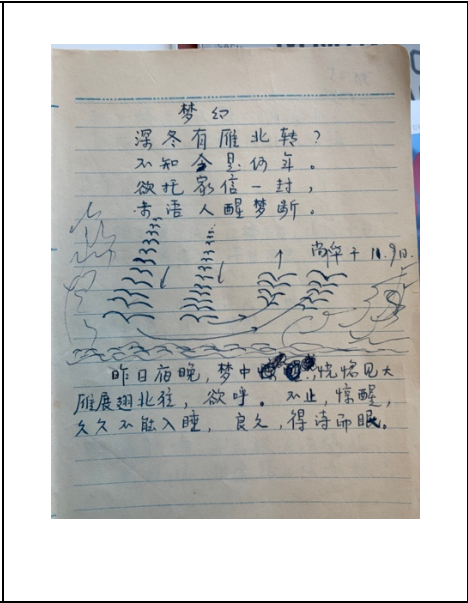 梦幻
深冬有雁北转？
不知今是何年。
欲托家信一封，
未语人醒梦断。
尚华于 11.9日.
昨日夜晚，梦中恍惚见大
雁展翅北往，欲呼。不止，惊醒，
久久不能入睡，良久，得诗而眠。